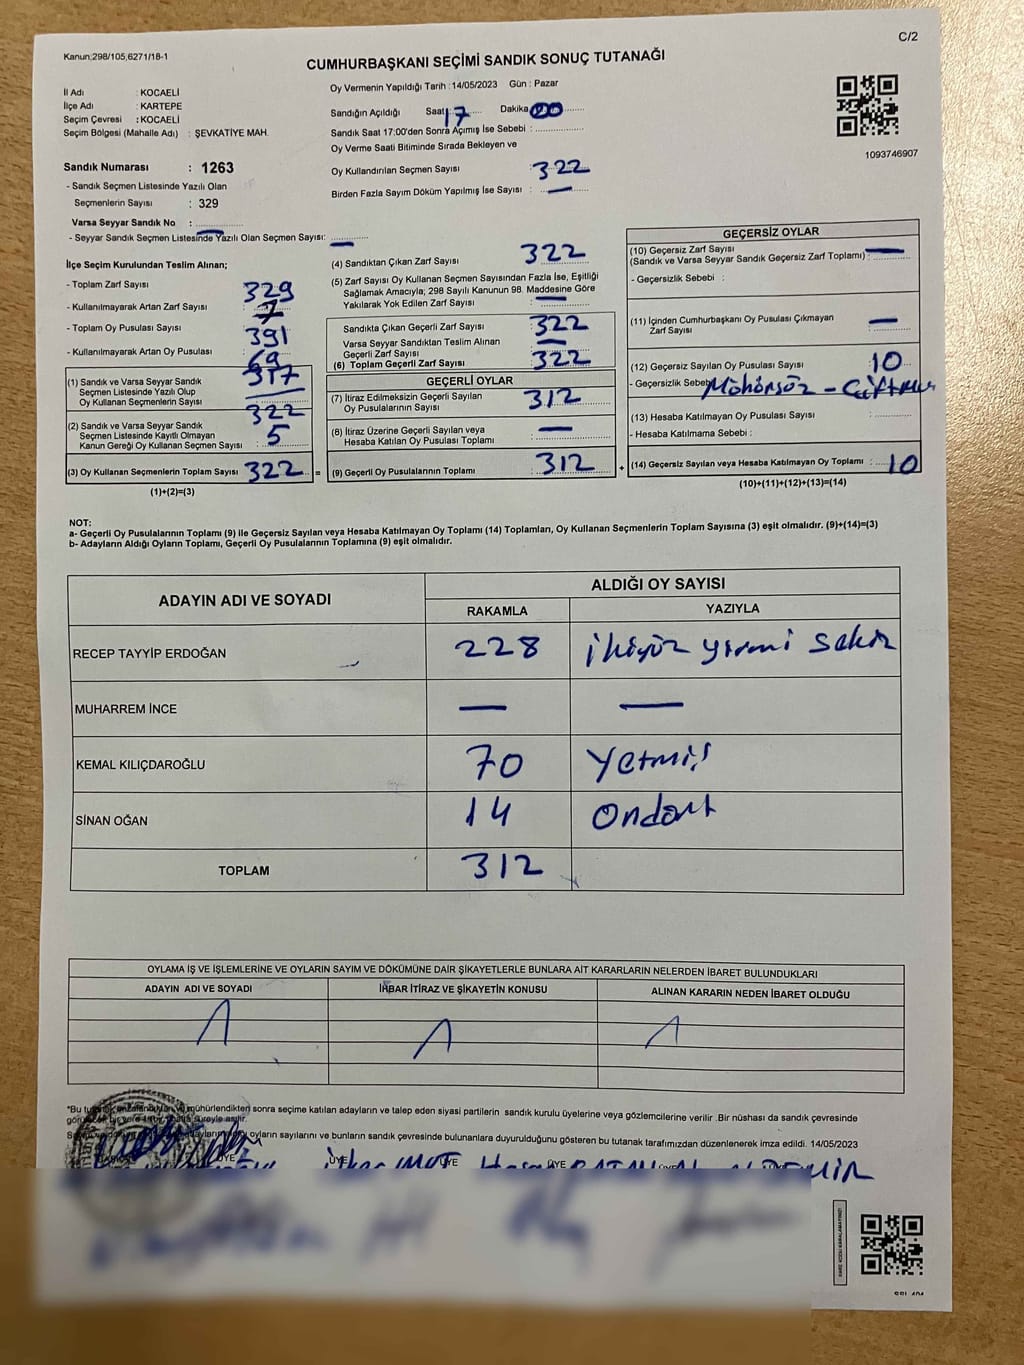 Kanun:298/105,6271/18-1
C/2
CUMHURBAŞKANI SEÇİMİ SANDIK SONUÇ TUTANAĞI
İl Adı : KOCAELİ
İlçe Adı : KARTEPE
Seçim Çevresi : KOCAELİ
Seçim Bölgesi (Mahalle Adı) : ŞEVKATİYE MAH.
Sandık Numarası : 1263
- Sandık Seçmen Listesinde Yazılı Olan
Seçmenlerin Sayısı : 329
Varsa Seyyar Sandık No : —
- Seyyar Sandık Seçmen Listesinde Yazılı Olan Seçmen Sayısı: —
Oy Vermenin Yapıldığı Tarih :14/05/2023 Gün : Pazar
Sandığın Açıldığı Saat 17 Dakika 00
Sandık Saat 17:00'den Sonra Açımış İse Sebebi :
Oy Verme Saati Bitiminde Sırada Bekleyen ve
Oy Kullandırılan Seçmen Sayısı : 322
Birden Fazla Sayım Döküm Yapılmış İse Sayısı : —
1093746907
İlçe Seçim Kurulundan Teslim Alınan;
- Toplam Zarf Sayısı 329
- Kullanılmayarak Artan Zarf Sayısı 7
- Toplam Oy Pusulası Sayısı 391
- Kullanılmayarak Artan Oy Pusulası 69
(1) Sandık ve Varsa Seyyar Sandık 317
Seçmen Listesinde Yazılı Olup
Oy Kullanan Seçmenlerin Sayısı 322
(2) Sandık ve Varsa Seyyar Sandık
Seçmen Listesinde Kayıtlı Olmayan
Kanun Gereği Oy Kullanan Seçmen Sayısı : 5
(3) Oy Kullanan Seçmenlerin Toplam Sayısı 322 =
(1)+(2)=(3)
(4) Sandıktan Çıkan Zarf Sayısı 322
(5) Zarf Sayısı Oy Kullanan Seçmen Sayısından Fazla İse, Eşitliği
Sağlamak Amacıyla; 298 Sayılı Kanunun 98. Maddesine Göre
Yakılarak Yok Edilen Zarf Sayısı : —
Sandıkta Çıkan Geçerli Zarf Sayısı 322
Varsa Seyyar Sandıktan Teslim Alınan
Geçerli Zarf Sayısı —
(6) Toplam Geçerli Zarf Sayısı 322
GEÇERLİ OYLAR
(7) İtiraz Edilmeksizin Geçerli Sayılan
Oy Pusulalarının Sayısı 312
(8) İtiraz Üzerine Geçerli Sayılan veya
Hesaba Katılan Oy Pusulası Toplamı —
(9) Geçerli Oy Pusulalarının Toplamı 312 +
GEÇERSİZ OYLAR
(10) Geçersiz Zarf Sayısı
(Sandık ve Varsa Seyyar Sandık Geçersiz Zarf Toplamı) : —
- Geçersizlik Sebebi :
(11) İçinden Cumhurbaşkanı Oy Pusulası Çıkmayan
Zarf Sayısı —
(12) Geçersiz Sayılan Oy Pusulası Sayısı 10
- Geçersizlik Sebebi Mühürsüz -
(13) Hesaba Katılmayan Oy Pusulası Sayısı :
- Hesaba Katılmama Sebebi :
(14) Geçersiz Sayılan veya Hesaba Katılmayan Oy Toplamı : 10
(10)+(11)+(12)+(13)=(14)
NOT:
a- Geçerli Oy Pusulalarının Toplamı (9) ile Geçersiz Sayılan veya Hesaba Katılmayan Oy Toplamı (14) Toplamları, Oy Kullanan Seçmenlerin Toplam Sayısına (3) eşit olmalıdır. (9)+(14)=(3)
b- Adayların Aldığı Oyların Toplamı, Geçerli Oy Pusulalarının Toplamına (9) eşit olmalıdır.
ADAYIN ADI VE SOYADI ALDIĞI OY SAYISI
RAKAMLA YAZIYLA
RECEP TAYYİP ERDOĞAN 228 ikiyüz yirmi sekiz
MUHARREM İNCE — —
KEMAL KILIÇDAROĞLU 70 Yetmiş
SİNAN OĞAN 14 Ondört
TOPLAM 312
OYLAMA İŞ VE İŞLEMLERİNE VE OYLARIN SAYIM VE DÖKÜMÜNE DAİR ŞİKAYETLERLE BUNLARA AİT KARARLARIN NELERDEN İBARET BULUNDUKLARI
ADAYIN ADI VE SOYADI İHBAR İTİRAZ VE ŞİKAYETİN KONUSU ALINAN KARARIN NEDEN İBARET OLDUĞU
*Bu mühürlendikten sonra seçime katılan adayların ve talep eden siyasi partilerin sandık kurulu üyelerine veya gözlemcilerine verilir .Bir nüshası da sandık çevresinde
süreyle asılır.
oyların sayılarını ve bunların sandık çevresinde bulunanlara duyurulduğunu gösteren bu tutanak tarafımızdan düzenlenerek imza edildi. 14/05/2023
ÜYE ÜYE ÜYE